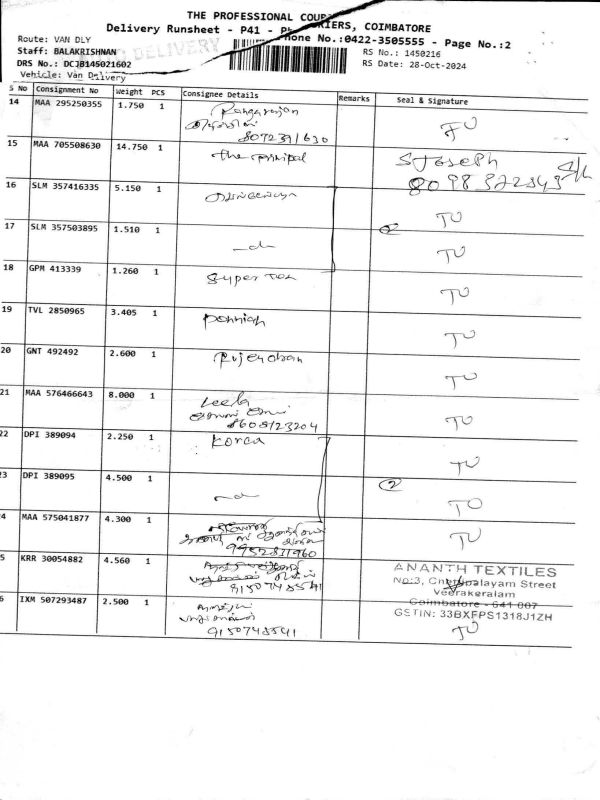 THE PROFESSIONAL COUR
Delivery Runsheet - P41 - P RIERS, COIMBATORE
Phone No.:0422-3505555 - Page No.:2
Route: VAN DLY
RS No.: 1450216
Staff: BALAKRISHNAN
RS Date: 28-Oct-2024
DRS No.: DCJB145021602
Vehicle: Van Delivery
S No Consignment No Weight PCS Consignee Details Remarks Seal & Signature
14 MAA 295250355 1.750 1 Rangarajan
8072391630
15 MAA 705508630 14.750 1 the principal S Joseph
8098322343
16 SLM 357416335 5.150 1 TU
17 SLM 357503895 1.510 1 -d- TU
18 GPM 413339 1.260 1 Super Tex TU
19 TVL 2850965 3.405 1 Ponniah TU
20 GNT 492492 2.600 1 Rajendran TU
21 MAA 576466643 8.000 1 Leela TU
8608123204
22 DPI 389094 2.250 1 Korea TU
23 DPI 389095 4.500 1 -d- 2 TU
24 MAA 575041877 4.300 1 TU
9952831960
25 KRR 30054882 4.560 1 9150748541
ANANTH TEXTILES
No:3, Chettipalayam Street
Veerakeralam
Coimbatore - 641 007
GSTIN: 33BXFPS1318J1ZH
26 IXM 507293487 2.500 1 TU
9150748541